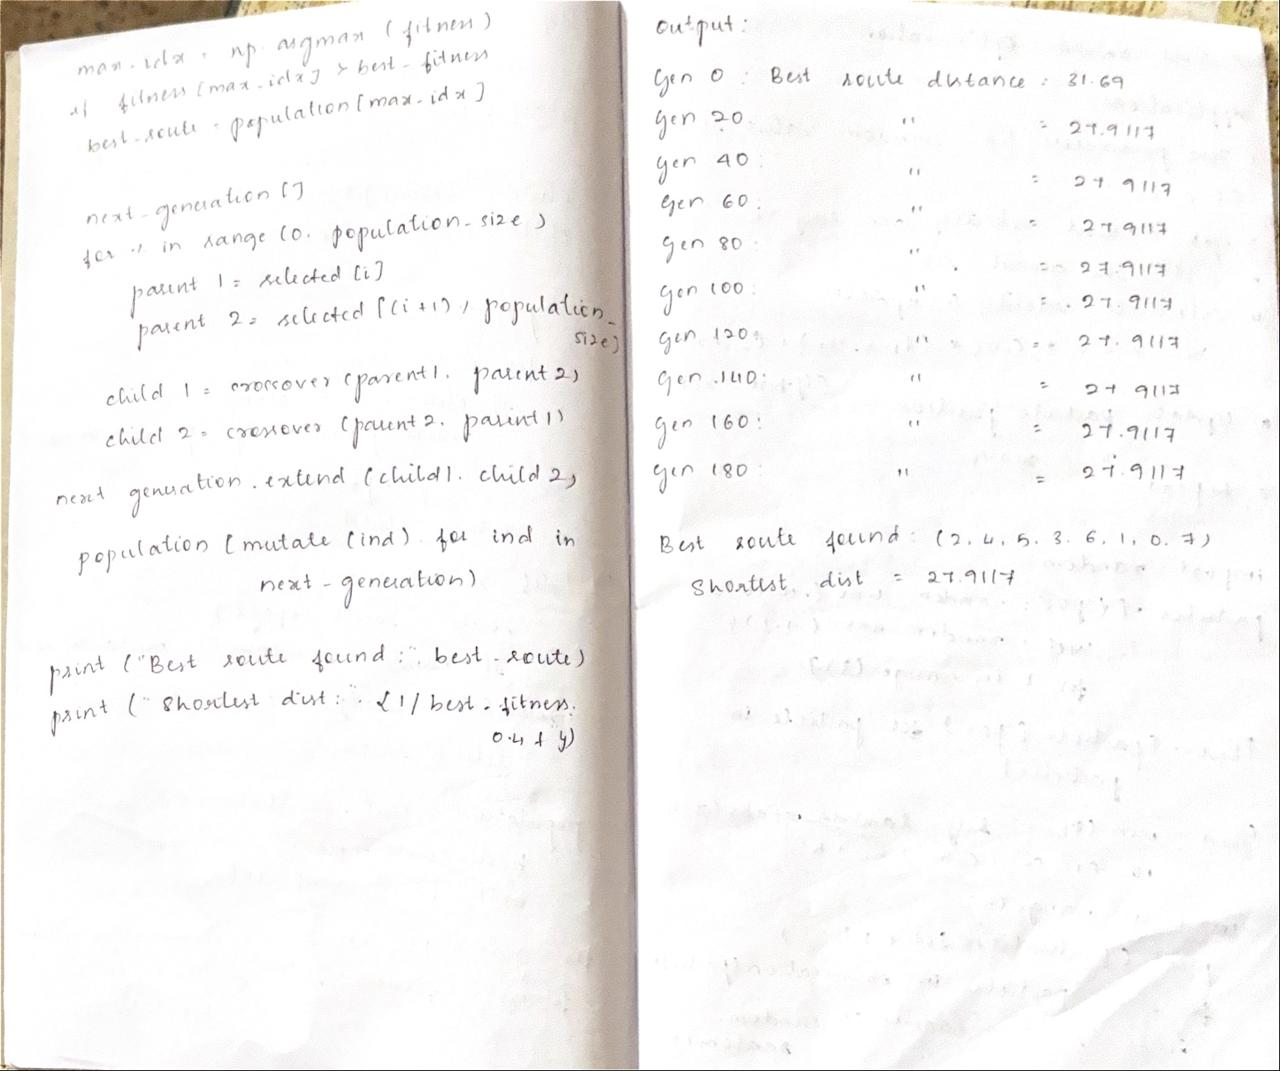 max_idx = np.argmax (fitness)
if fitness [max_idx] > best_fitness
best_route = population [max_idx]
next_generation []
for i in range (0. population_size)
parent 1 = selected [i]
parent 2 = selected [(i+1), population_
size]
child 1 = crossover (parent1. parent 2)
child 2 = crossover (parent 2. parent 1)
next generation. extend (child1. child 2)
population [mutate (ind) for ind in
next_generation)
print ("Best route found:". best_route)
print ("Shortest dist:". {1/best_fitness.
0.4 f y)
Output:
Gen 0 : Best route distance : 31.69
Gen 20 " = 27.9117
Gen 40 : " = 27.9117
Gen 60 : " = 27.9117
Gen 80 : " = 27.9117
Gen 100 : " = 27.9117
Gen 120 : " = 27.9117
Gen 140 : " = 27.9117
Gen 160 : " = 27.9117
Gen 180 : " = 27.9117
Best route found : (2, 4, 5, 3, 6, 1, 0, 7)
Shortest dist = 27.9117